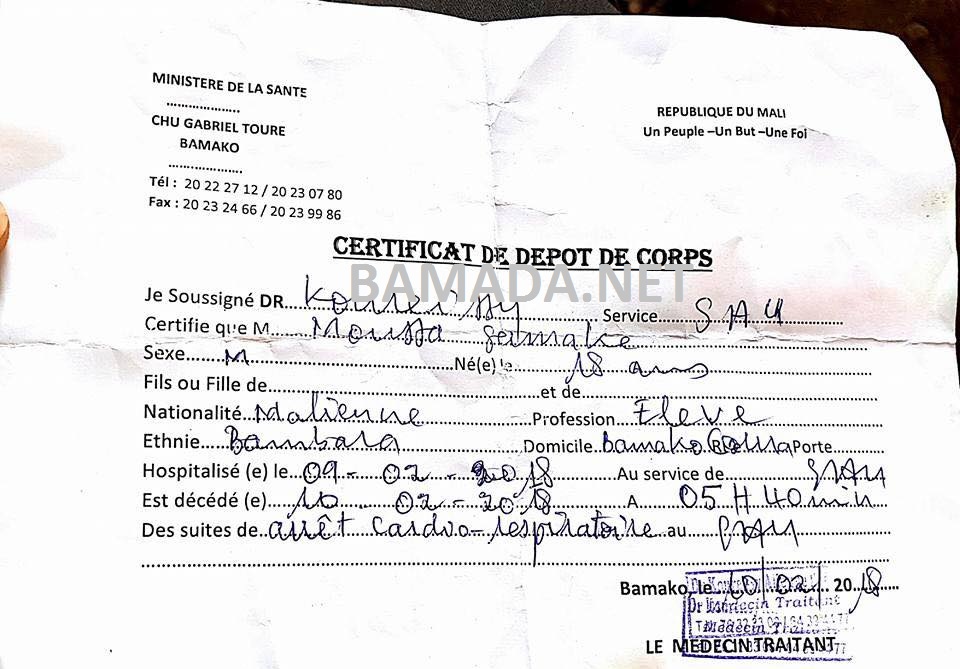 MINISTERE DE LA SANTE
....................
CHU GABRIEL TOURE
BAMAKO
....................
Tél : 20 22 27 12 / 20 23 07 80
Fax : 20 23 24 66 / 20 23 99 86
REPUBLIQUE DU MALI
Un Peuple –Un But –Une Foi
CERTIFICAT DE DEPOT DE CORPS
BAMADA.NET
Je Soussigné DR... Service... SAU
Certifie que M... Moussa
Sexe... M Né(e) le... 18 ans
Fils ou Fille de... et de...
Nationalité... Malienne Profession Eleve
Ethnie... Bambara Domicile Bamako Coura Porte
Hospitalisé (e) le... 09-02-2018 Au service de SAU
Est décédé (e)... 10 02-2018 A 05 H 40 min
Des suites de arrêt cardio-respiratoire au SAU
Bamako, le 10/02/ 2018
Médecin Traitant
LE MEDECIN TRAITANT